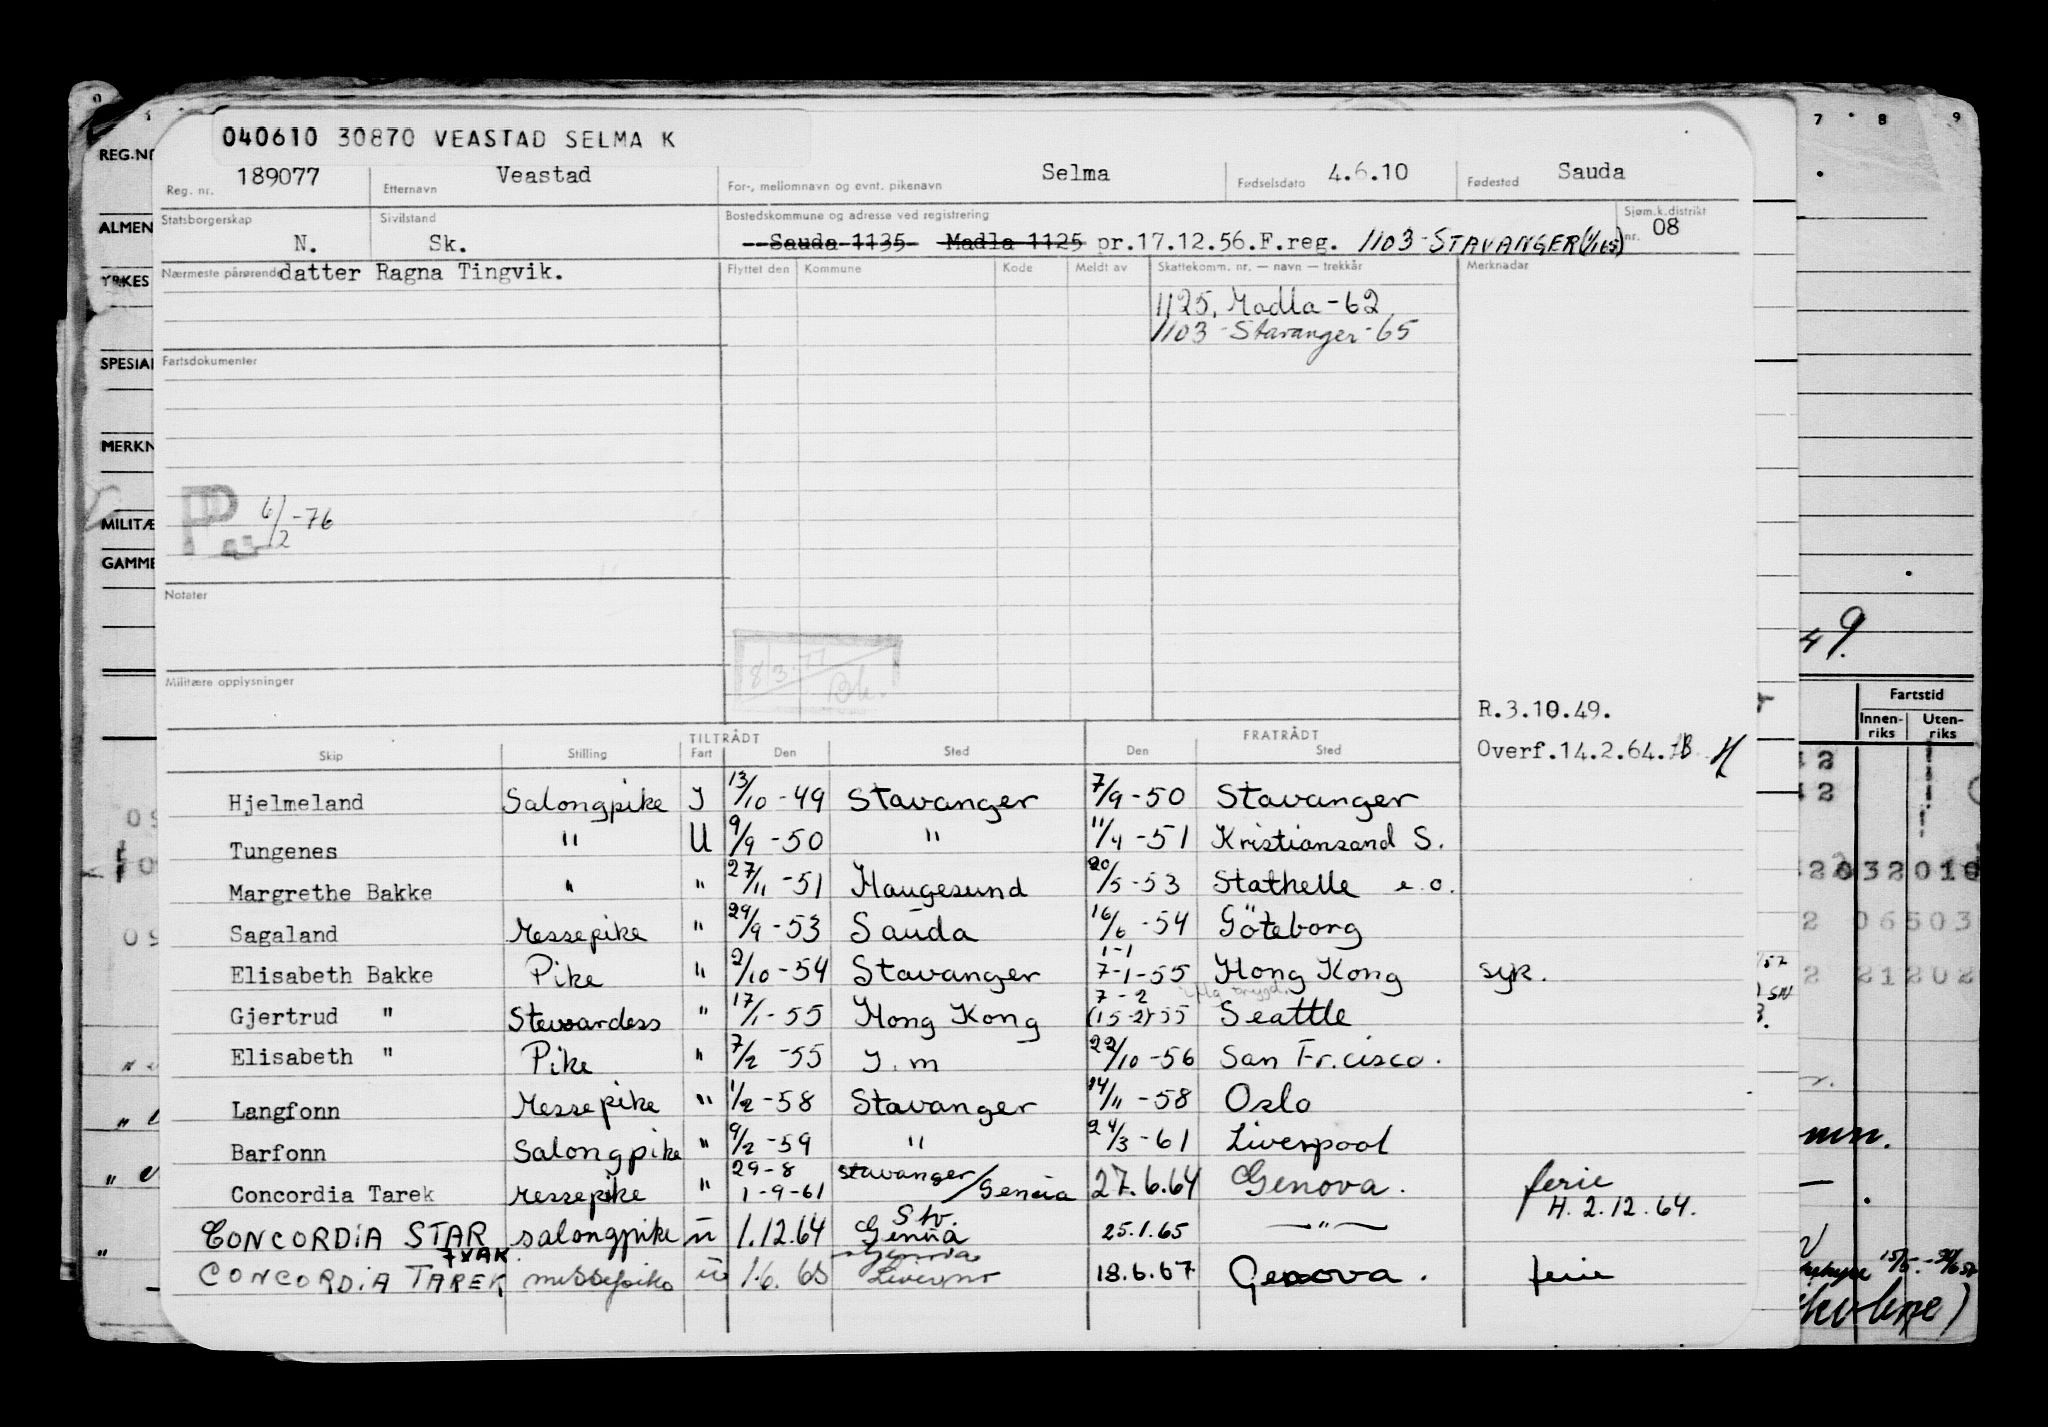 040610 30870 VEASTAD SELMA K
Reg. nr. 189077 Etternavn Veastad For-, mellomnavn og evnt. pikenavn Selma Fødselsdato 4.6.10 Fødested Sauda
Statsborgerskap N. Sivilstand Sk. Bostedskommune og adresse ved registrering Sauda 1135 Madla 1125 pr.17.12.56.F.reg. 1103-STAVANGER(1/1 65) Sjøm.k.distrikt nr. 08
Nærmeste pårørende datter Ragna Tingvik. Flyttet den Kommune Kode Meldt av Skattekomm. nr. — navn — trekkår Merknader
1125, Madla-62
1103-Stavanger-65
Fartsdokumenter
6/2-76
Notater
Militære opplysninger
R.3.10.49.
Overf.14.2.64.
TILTRÅDT FRATRÅDT
Skip Stilling Fart Den Sted Den Sted
Hjelmeland Salongpike I 13/10-49 Stavanger 7/9-50 Stavanger
Tungenes " U 9/9-50 " 11/4-51 Kristiansand S.
Margrethe Bakke " " 27/11-51 Haugesund 20/5-53 Stathelle e.o.
Sagaland Messepike " 29/9-53 Sauda 16/6-54 Göteborg
1-1
Elisabeth Bakke Pike " 2/10-54 Stavanger 7-1-55 Hong Kong syk.
7-2
Gjertrud " Stewardess " 17/1-55 Hong Kong (15-2)-55 Seattle
Elisabeth " Pike " 7/2-55 I.m 22/10-56 San Fr.cisco.
Langfonn Messepike " 1/2-58 Stavanger 14/11-58 Oslo
Barfonn Salongpike " 9/2-59 " 24/3-61 Liverpool
29-8 Stavanger/
Concordia Tarek Messepike " 1-9-61 Genua 27.6.64 Genova. ferie
H. 2.12.64.
Stv.
CONCORDIA STAR salongpike u 1.12.64 Genua 25.1.65 — " —
Genova
CONCORDIA TAREK messepike u 1.6.65 18.6.67 Genova. ferie
REG.NR
ALMEN
YRKES
SPESIAL
MERKN
MILITÆ
GAMME
7 8 9
49.
Fartstid
Innen-riks Uten-riks